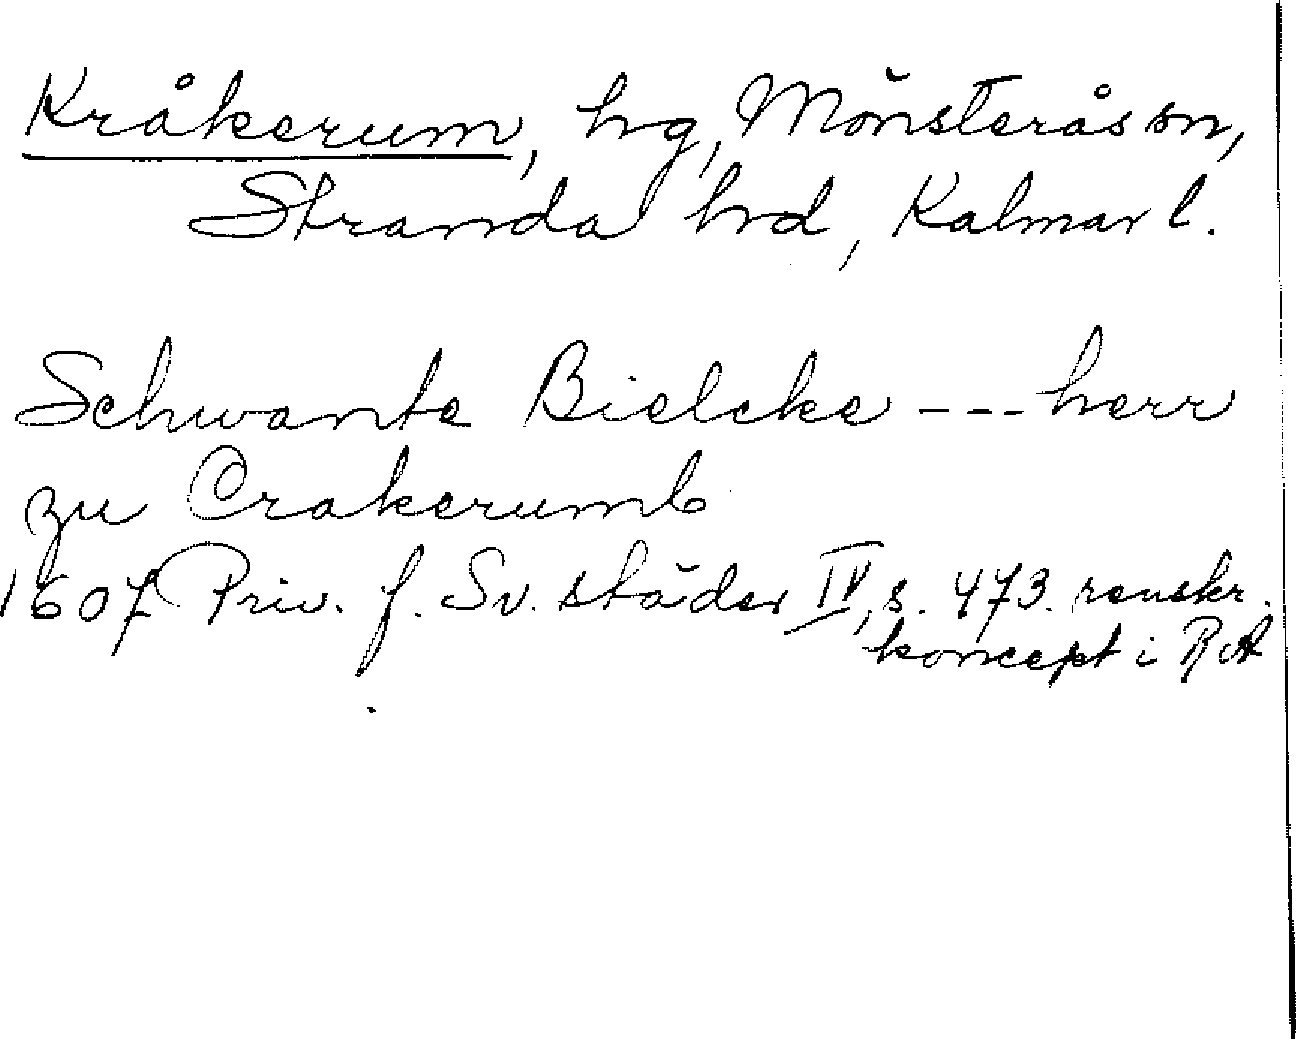 Kråkerum, hg, Mönsterås sn,
Stranda hd, Kalmar l.
Schwante Bielcke --- herr
zu Crakerumb
1607 Priv. f. Sv. städer IV, s. 473. renskr.
koncept i RA